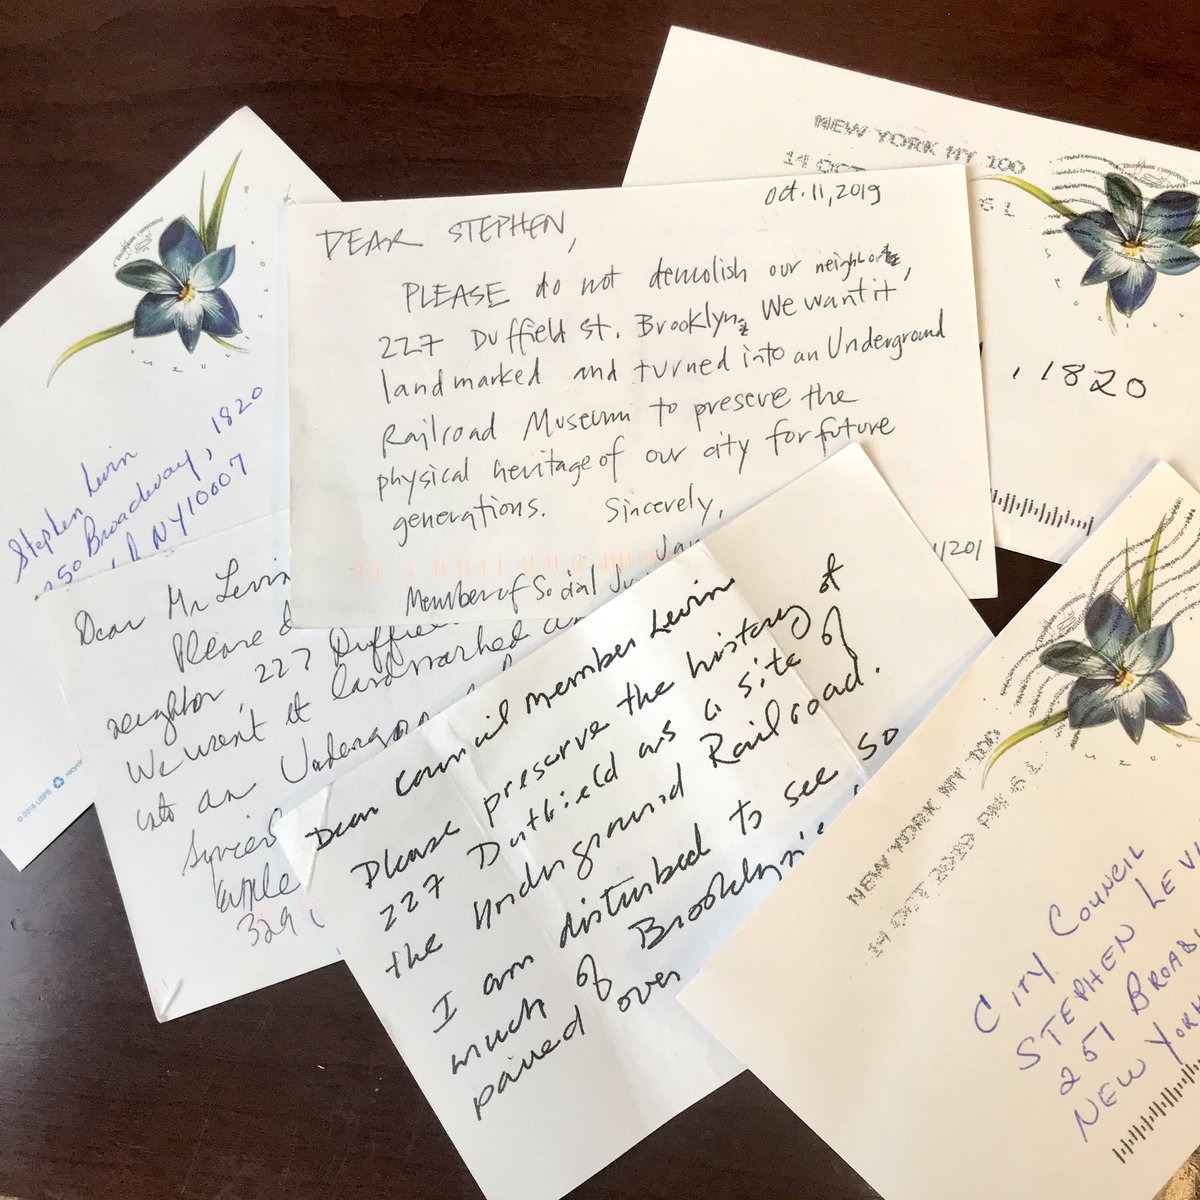 NEW YORK NY 100
14 OCT
, 1820
Stephen Levin
250 Broadway, 1820
NY 10007
© 2018 USPS
Oct. 11, 2019
DEAR STEPHEN,
PLEASE do not demolish our neighbor,
227 Duffield St. Brooklyn. We want it
landmarked and turned into an Underground
Railroad Museum to preserve the
physical heritage of our city for future
generations. Sincerely,
Member of Social Ju
11201
Dear Mr Levin
Please d
neighbor, 227 Duffield
We want it landmarked a
into an Undergro
329
Dear Council member Levin
Please preserve the history of
227 Duffield as a site of
the Underground Railroad.
I am disturbed to see so
much of Brooklyn
paved over
NEW YORK NY 100
14 OCT 2019 PM 6 L
CITY COUNCIL
STEPHEN LEVI
251 BROADW
NEW YORK